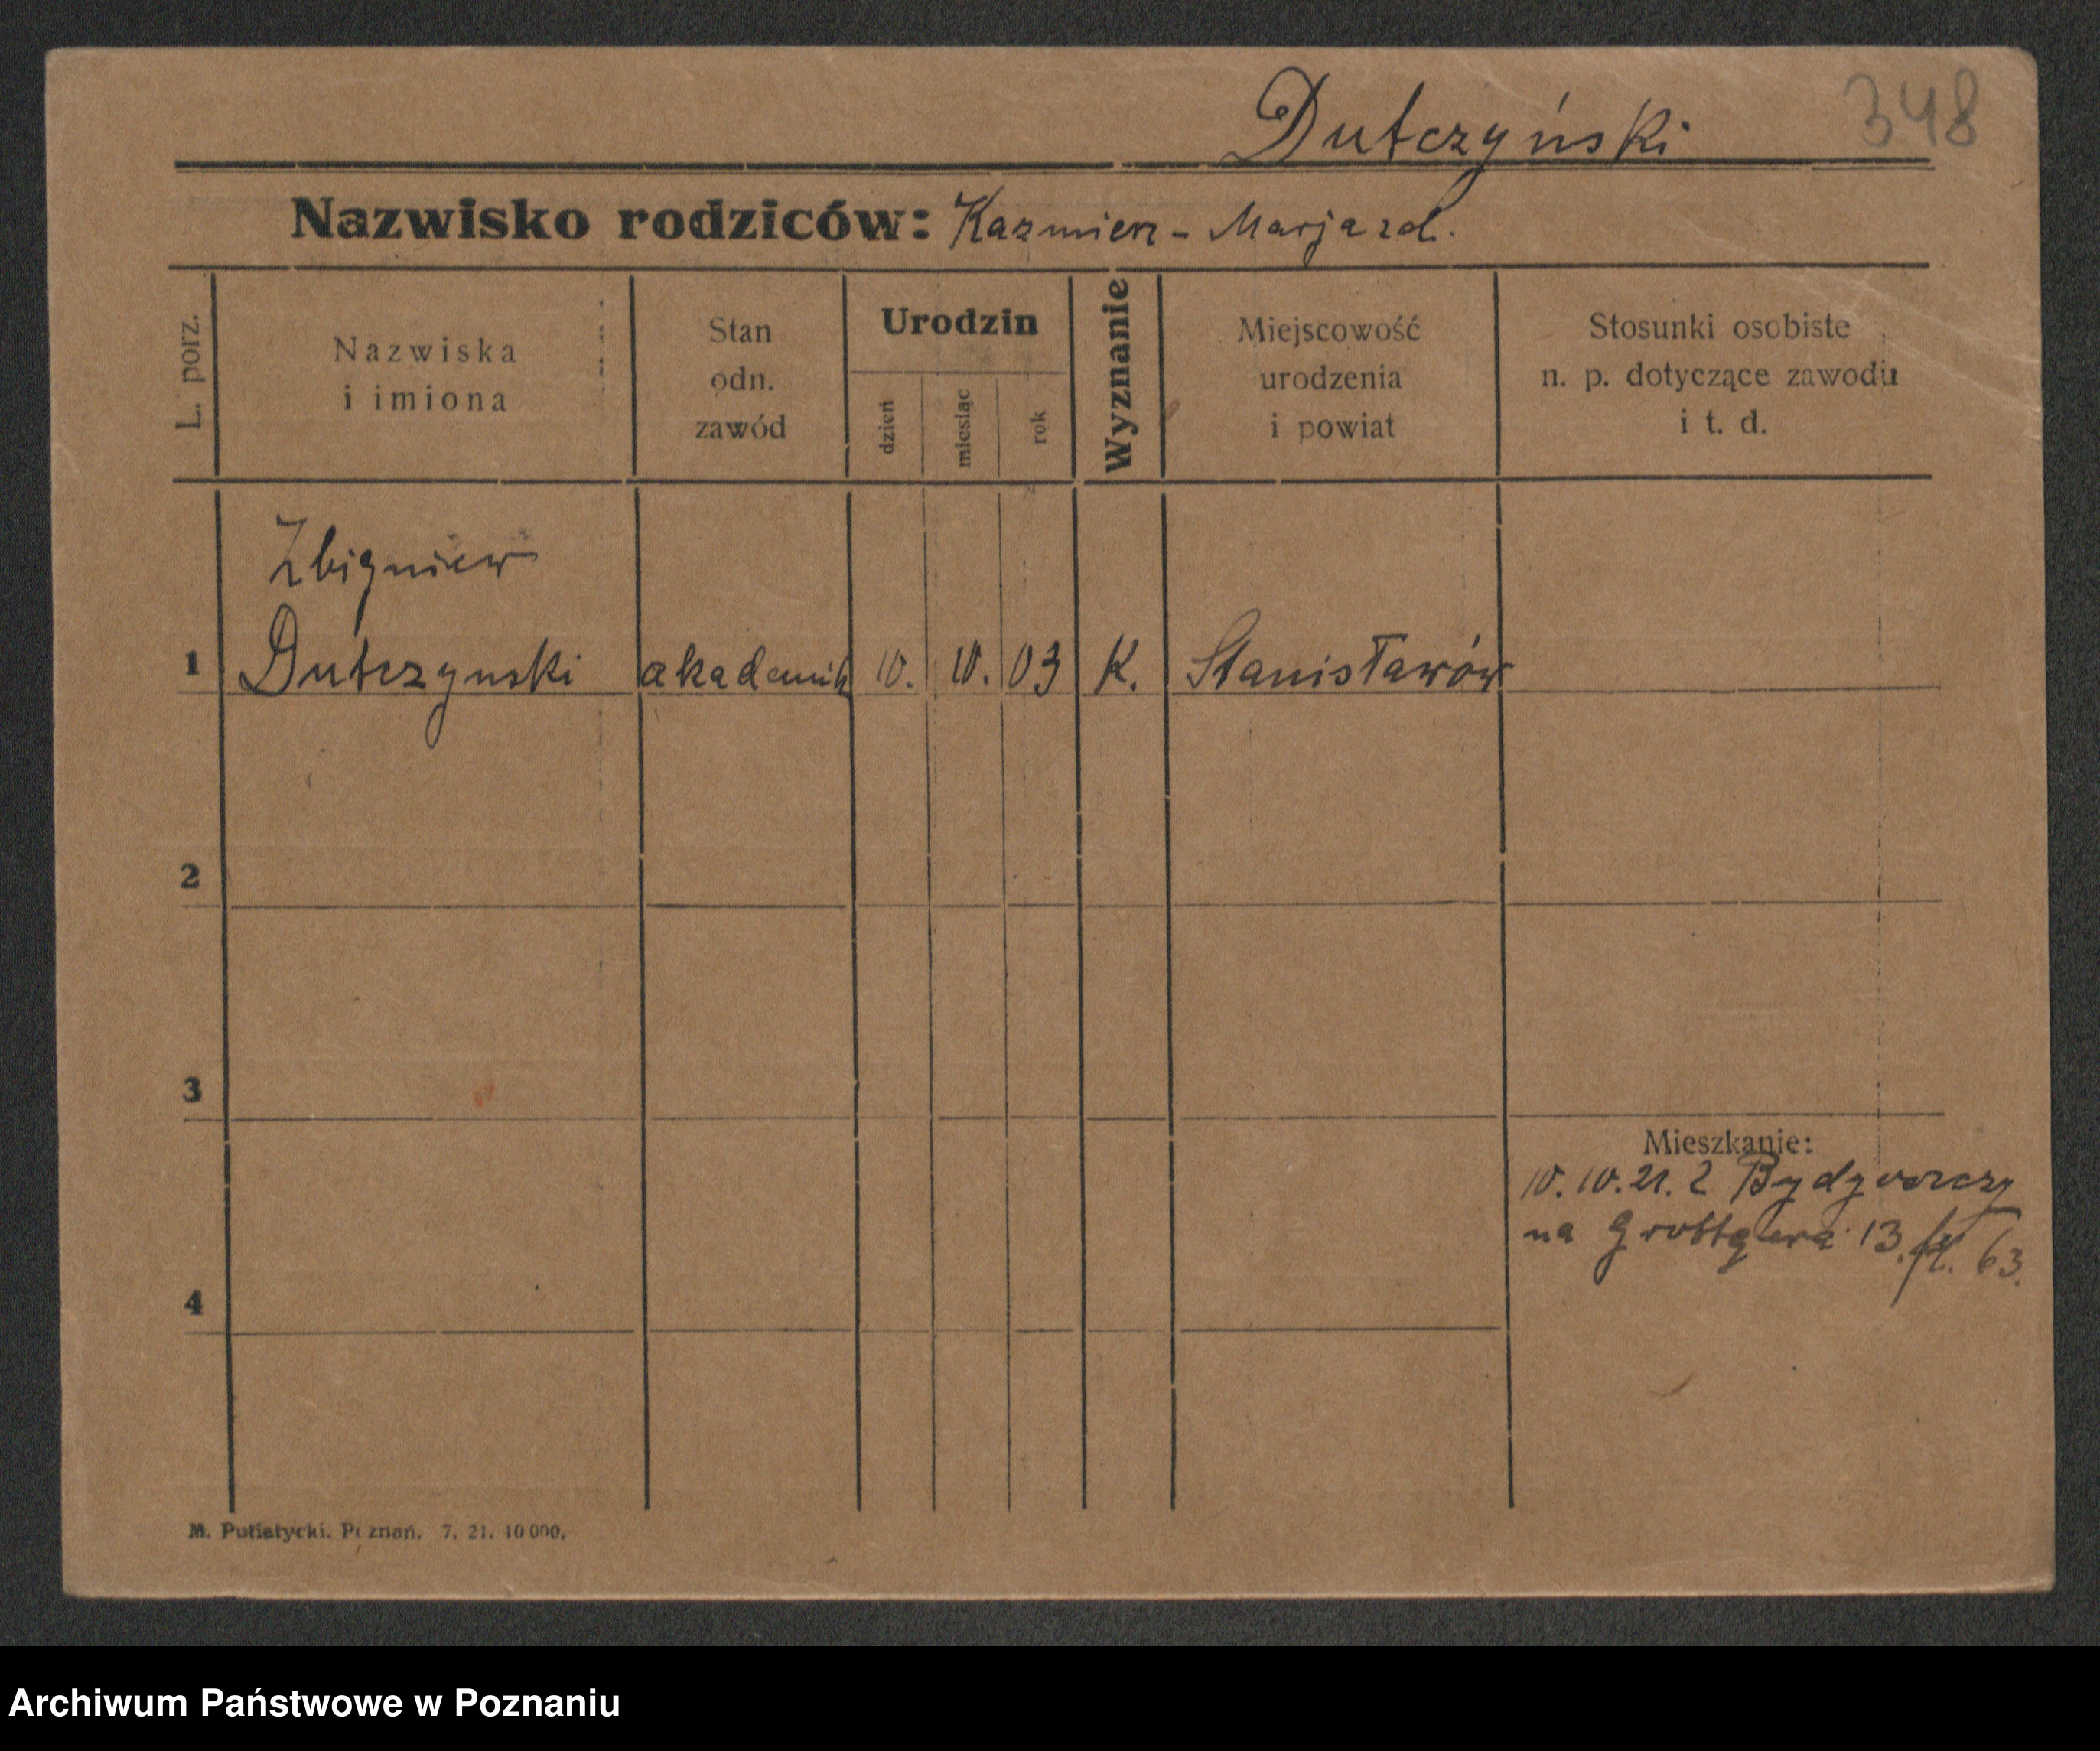 Dutczyński 348
Nazwisko rodziców: Kazmierz - Marja zd.
L. porz.
Nazwiska
i imiona
Stan
odn.
zawód
Urodzin
dzień
miesiąc
rok
Wyznanie
Miejscowość
urodzenia
i powiat
Stosunki osobiste
n. p. dotyczące zawodu
i t. d.
Zbigniew
1 Dutczynski akademik 10. 10. 03 K. Stanisławów
2
3
Mieszkanie:
10. 10. 21. z
na Grottgera 13. 63.
4
M. Putiatycki. Poznań. 7. 21. 10 000.
Archiwum Państwowe w Poznaniu